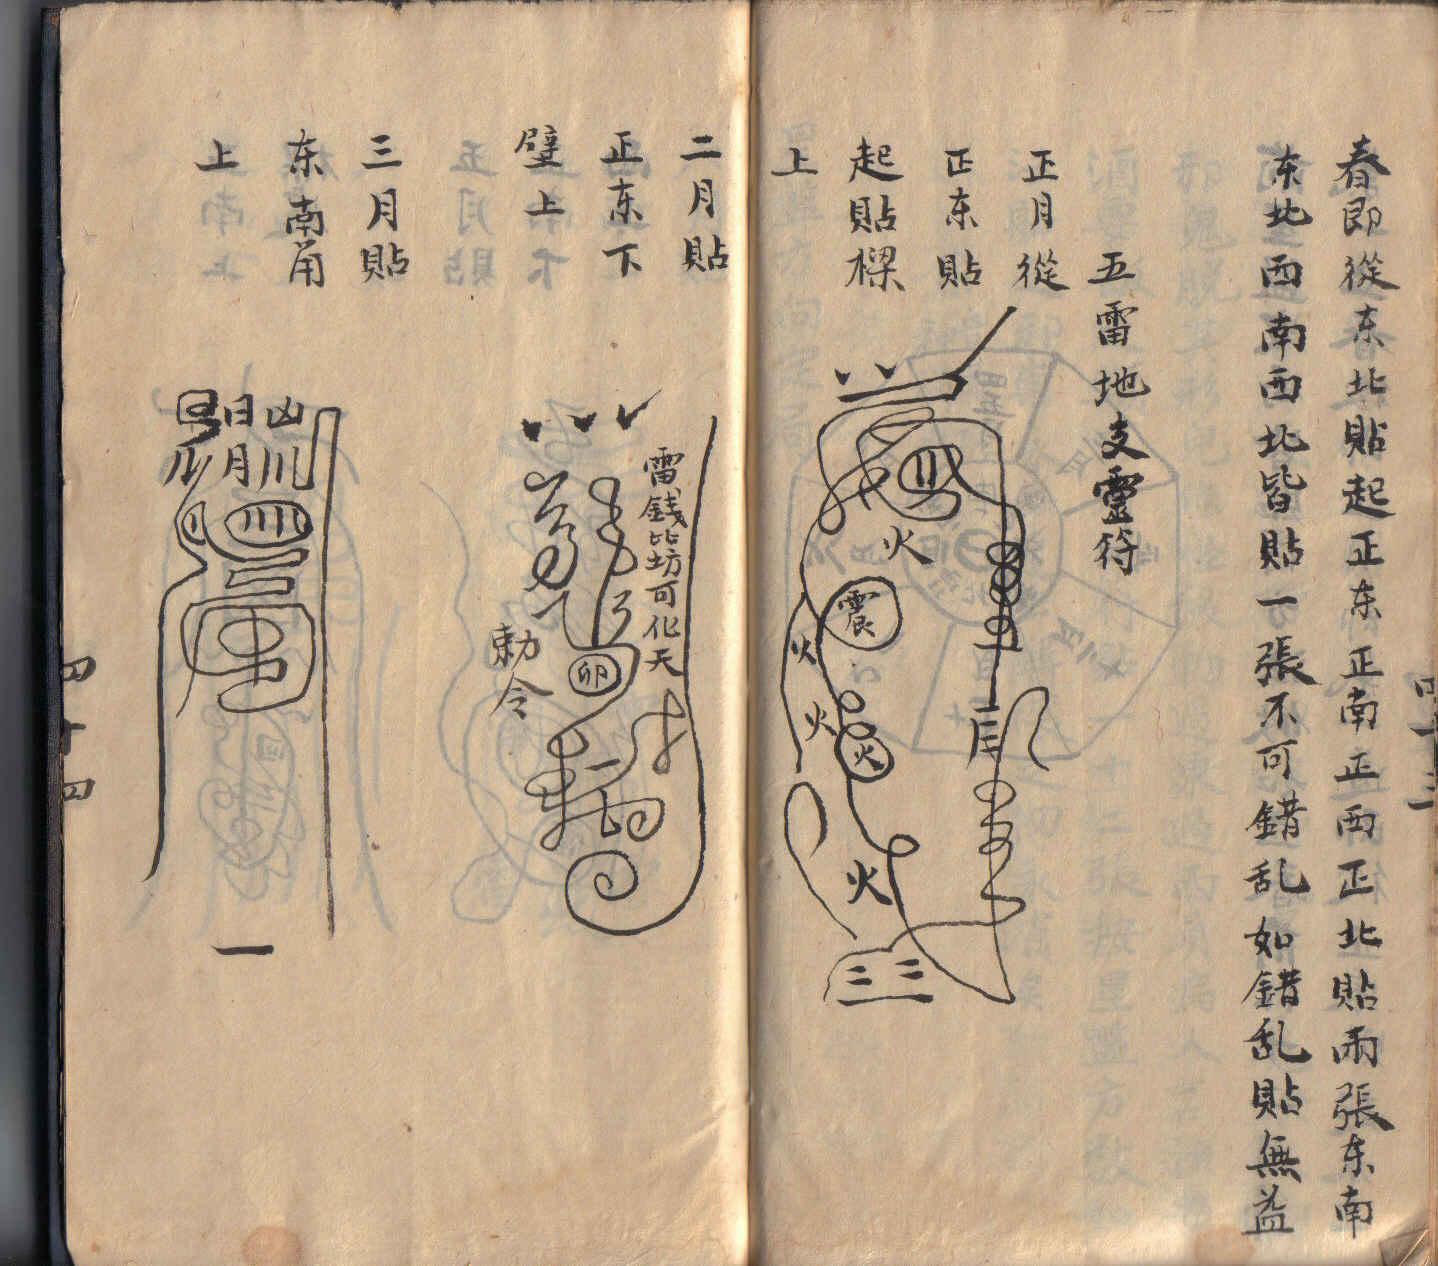 春即從东北貼起正东正南正西正北貼兩張东南
东北西南西北皆貼一張不可錯乱如錯乱貼無益
五雷地支靈符
正月從
正东貼
起貼樑
上
火
震
火
火
火
火
二月貼
正东下
壁上
雷錢比坊可化天
卯
勅令
三月貼
东南角
上
日月
一
四十四